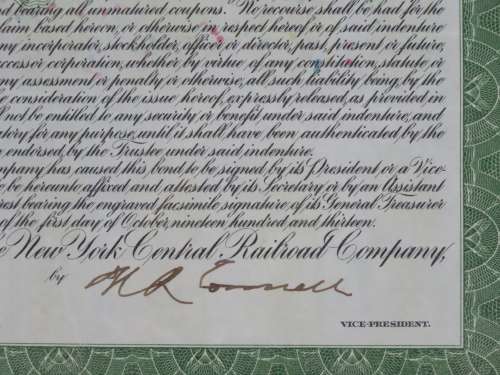 nd bearing all unmatured coupons. No recourse shall be had for the
laim based hereon, or otherwise in respect hereof or of said indenture
y incorporator, stockholder, officer or director, past, present or future,
ccessor corporation, whether by virtue of any constitution, statute or
ny assessment or penalty or otherwise, all such liability being, by the
e consideration of the issue hereof, expressly released, as provided in
ll not be entitled to any security or benefit under said indenture, and
atory for any purpose, until it shall have been authenticated by the
n endorsed, by the Trustee under said indenture.
ompany has caused this bond to be signed by its President or a Vice-
o be hereunto affixed and attested by its Secretary or by an Assistant
rest bearing the engraved facsimile signature of its General Treasurer
of the first day of October, nineteen hundred and thirteen.
e New York Central Railroad Company,
by
VICE-PRESIDENT.